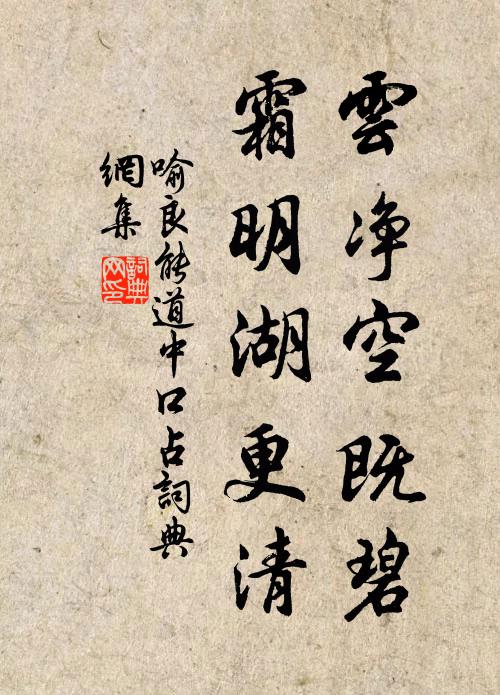 雲净空既碧
霜明湖更清
喻良能道中口占詞典
網集
詞典網印